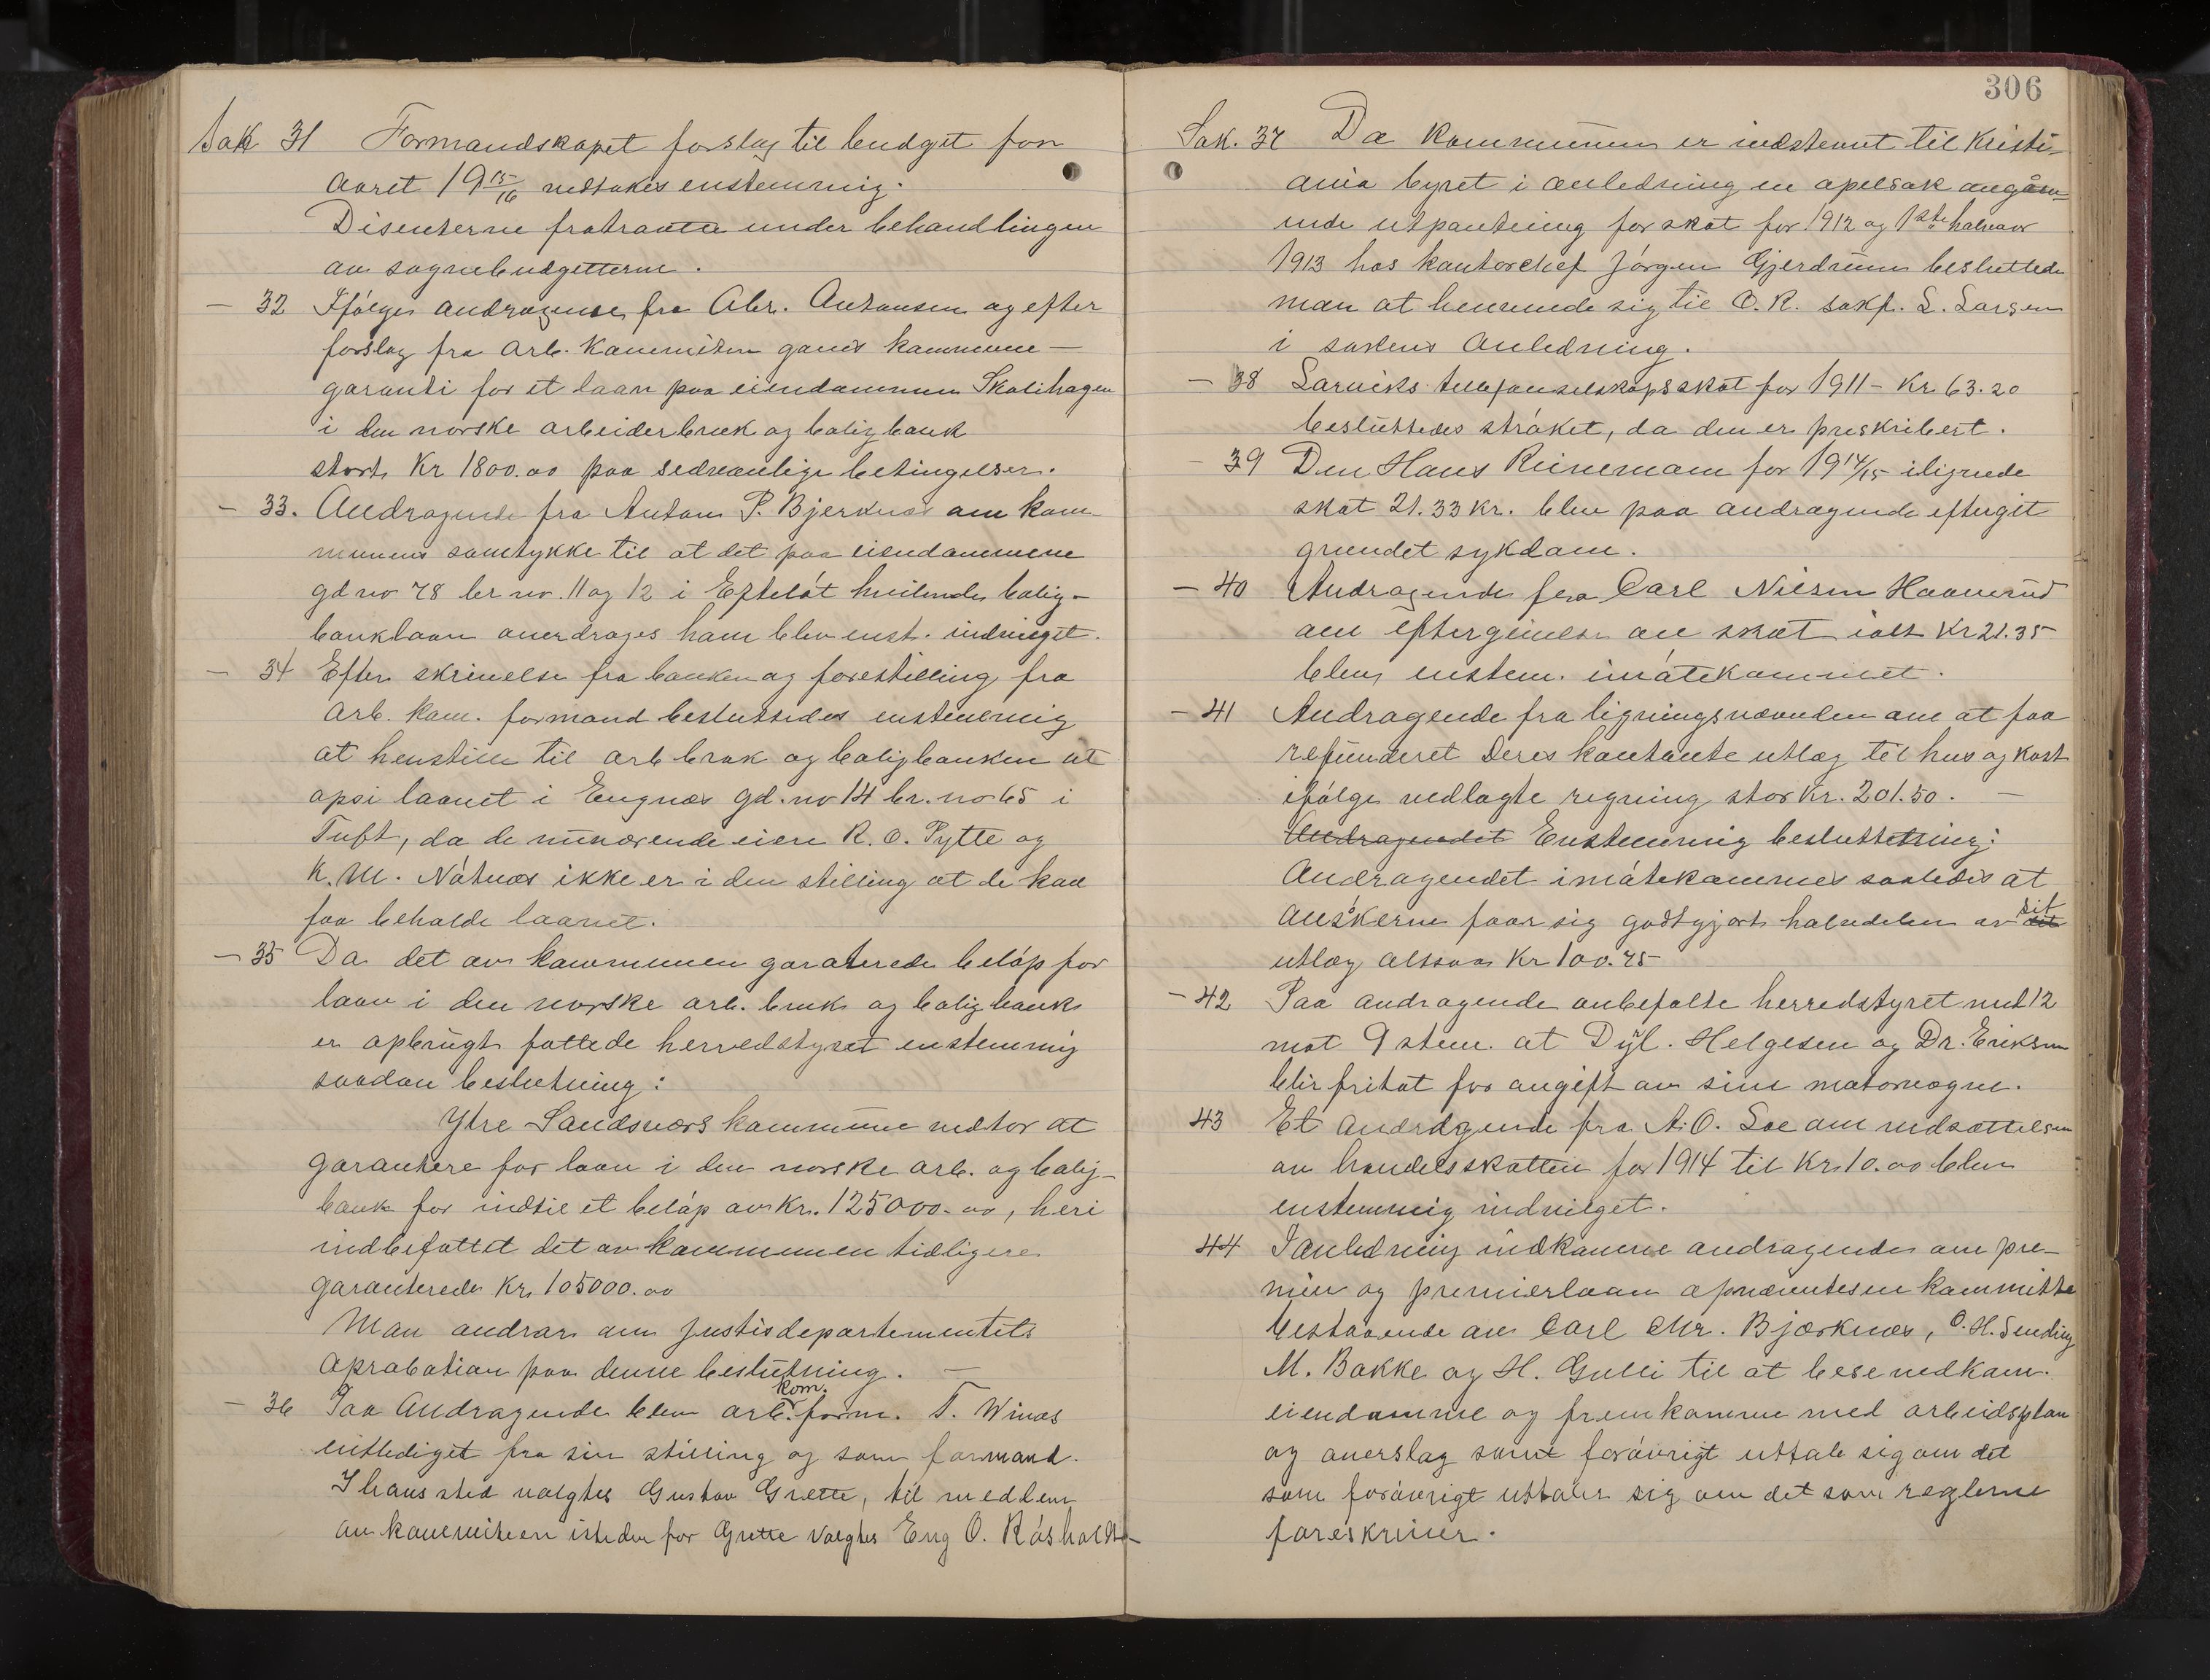 Sak 31 Formandskapet forslag til budget for
aaret 19 15/16 vedtokes enstemmig.
Disenterne fratraatte under behandlingen
av sognebudgetterne.
— 32 Ifølge andragende fra Abr. Antonsen og efter
forslag fra arb. kommiteen gaves kommune-
garanti for et laan paa eiendommen Skolihagen
i den norske arbeiderbruk og boligbank
stort Kr 1800.00 paa sedvanlige betingelser.
— 33. Andragende fra Anton P. Bjerknes om kom-
munens samtykke til at det paa eiendommene
gd no 78 br no. 11 og 12 i Efteløt hvilende bolig-
banklaan overdrages ham blev enst. indvilget.
— 34 Efter skrivelse fra banken og forestilling fra
arb. kom. formand besluttedes enstemmig
at henstille til arb bruk og boligbanken at
opsi laanet i Engnes gd. no 14 br. no 65 i
Tuft, da de nuværende eiere R. O. Pytte og
K. M. Nøtnes ikke er i den stilling at de kan
faa beholde laanet.
— 35 Da det av kommunen garaterede beløp for
laan i den norske arb. bruk og boligbank
er opbrugt fattede herredstyret enstemmig
saadan beslutning:
Ytre Sandsværs kommune vedtar at
garantere for laan i den norske arb. og bolig-
bank for indtil et beløp av Kr. 125000.00, heri
indbefattet det av kommunen tidligere
garanterede Kr. 105000.00
Man andrar om Justisdepartementets
aprobation paa denne beslutning. —
— 36 Paa Andragende blev arb. kom. form. T. Winæs
entlediget fra sin stilling og som formand.
I hans sted valgtes Gustav Grette, til medlem
av kommiteen isteden for Grette valgtes Eng O. Røsholdt
306
Sak. 37 Da kommunen er indstevnt til Kristi-
ania byret i anledning en apelsak angåen-
ende utpantning for skat for 1912 og 1ste halvaar
1913 hos kontorchef Jørgen Gjerdrum besluttede
man at henvende sig til O. R. sakf. L. Larsen
i sakens anledning.
— 38 Larviks telefonselskapsskat for 1911 - Kr 63.20
besluttedes strøket, da den er preskribert.
— 39 Den Hans Reinemoen for 19 14/15 ilignede
skat 21.33 kr. blev paa andragende eftergit
grundet sykdom.
— 40 Andragende fra Carl Nilsen Haaverud
om eftergivelse av skat ialt Kr 21.35
blev enstem. imøtekommet.
— 41 Andragende fra ligningsnævnden om at faa
refunderet deres kontante utlæg til hus og kost
ifølge vedlagte regning stor Kr. 201.50. —
Andragendet Enstemmig besluttetning:
Andragendet imøtekommes saaledes at
ansøkerne faar sig godtgjort halvdelen av sit
utlæg altsaa Kr 100.75
— 42 Paa andragende anbefalte herredstyret med 12
mot 9 stem. at Dyl. Helgesen og Dr. Eriksen
blir fritat for avgift av sine motorvogne.
43 Et andragende fra A. O. Loe om nedsættelsen
av handelsskatten for 1914 til Kr. 10.00 blev
enstemmig indvilget.
44 I anledning indkomne andragender om pre-
mier og premierlaan opnævntes en kommitte
bestaaende av Carl Chr. Bjørknes, O. H. Sending
M. Bakke og H. Gulli til at bese vedkom.
eiendomme og fremkomme med arbeidsplan
og overslag samt forøvrigt uttale sig om det
som forøvrigt uttaler sig om det som reglerne
foreskriver.